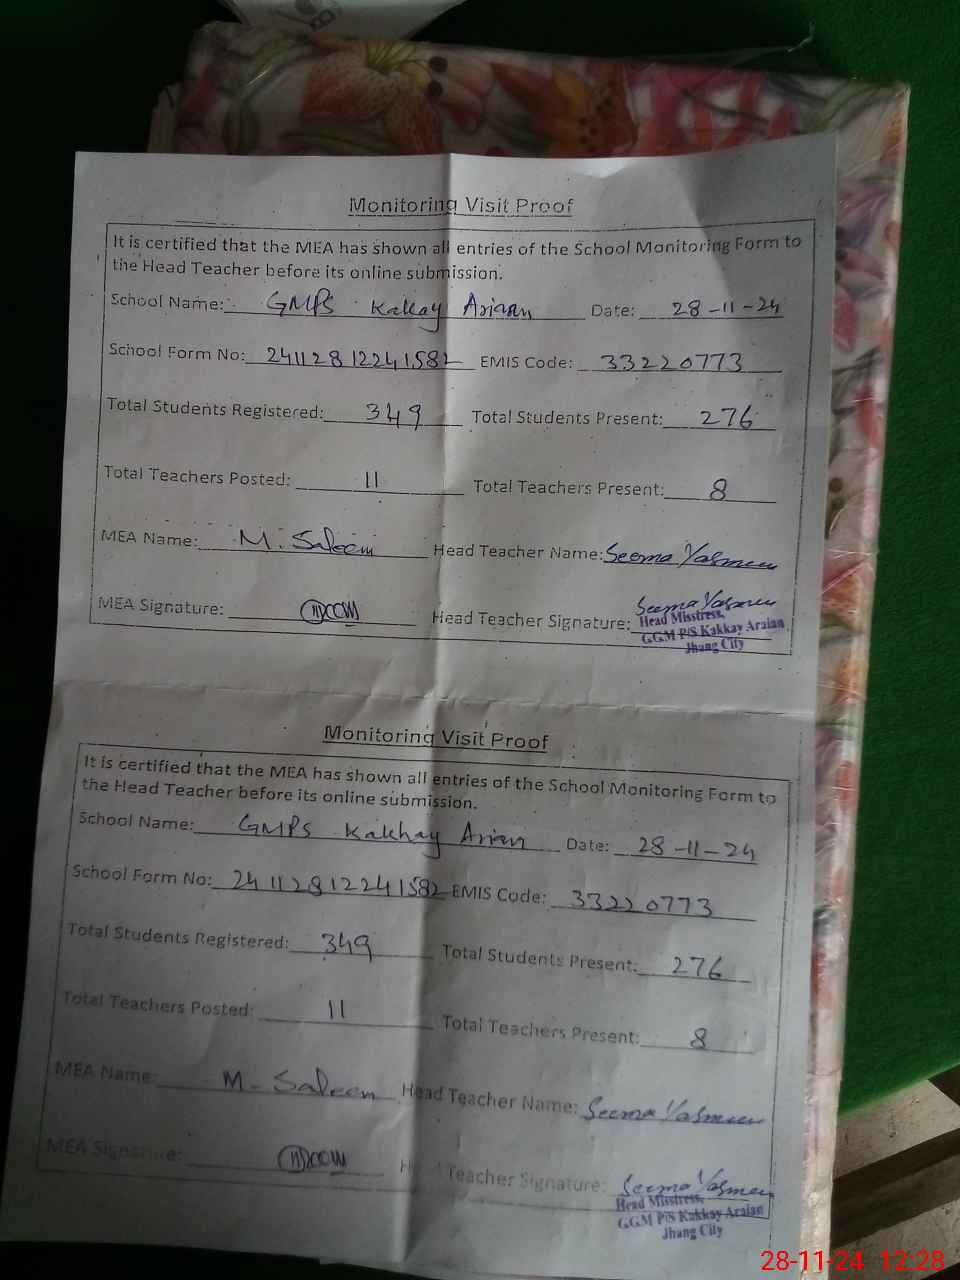 Monitoring Visit Proof
It is certified that the MEA has shown all entries of the School Monitoring Form to
the Head Teacher before its online submission.
School Name: GMPS Kakay Arian Date: 28-11-24
School Form No: 24112812241582 EMIS Code: 33220773
Total Students Registered: 349 Total Students Present: 276
Total Teachers Posted: 11 Total Teachers Present: 8
MEA Name: M. Saleem Head Teacher Name: Seema Yasmeen
MEA Signature: Head Teacher Signature: Seema Yasmeen
Head Misstress,
GGM P/S Kakkay Araian
Jhang City
Monitoring Visit Proof
It is certified that the MEA has shown all entries of the School Monitoring Form to
the Head Teacher before its online submission.
School Name: GMPS Kakhay Arian Date: 28-11-24
School Form No: 24112812241582 EMIS Code: 33220773
Total Students Registered: 349 Total Students Present: 276
Total Teachers Posted: 11 Total Teachers Present: 8
MEA Name: M. Saleem Head Teacher Name: Seema Yasmeen
MEA Signature: Head Teacher Signature: Seema Yasmeen
Head Misstress,
GGM P/S Kakkay Araian
Jhang City
28-11-24 12:28